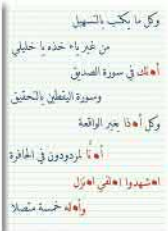 وكل ما يكتب بالتسهيل
من غير ياء خذه يا خليلي
أءنك في سورة الصديق
وسورة اليقطين بالتحقيق
وكل أءذا بغير الواقعة
أءنا لمردودون في الحافرة
اءشهدوا اءلقي اءنزل
وأءله خمسة متصلا